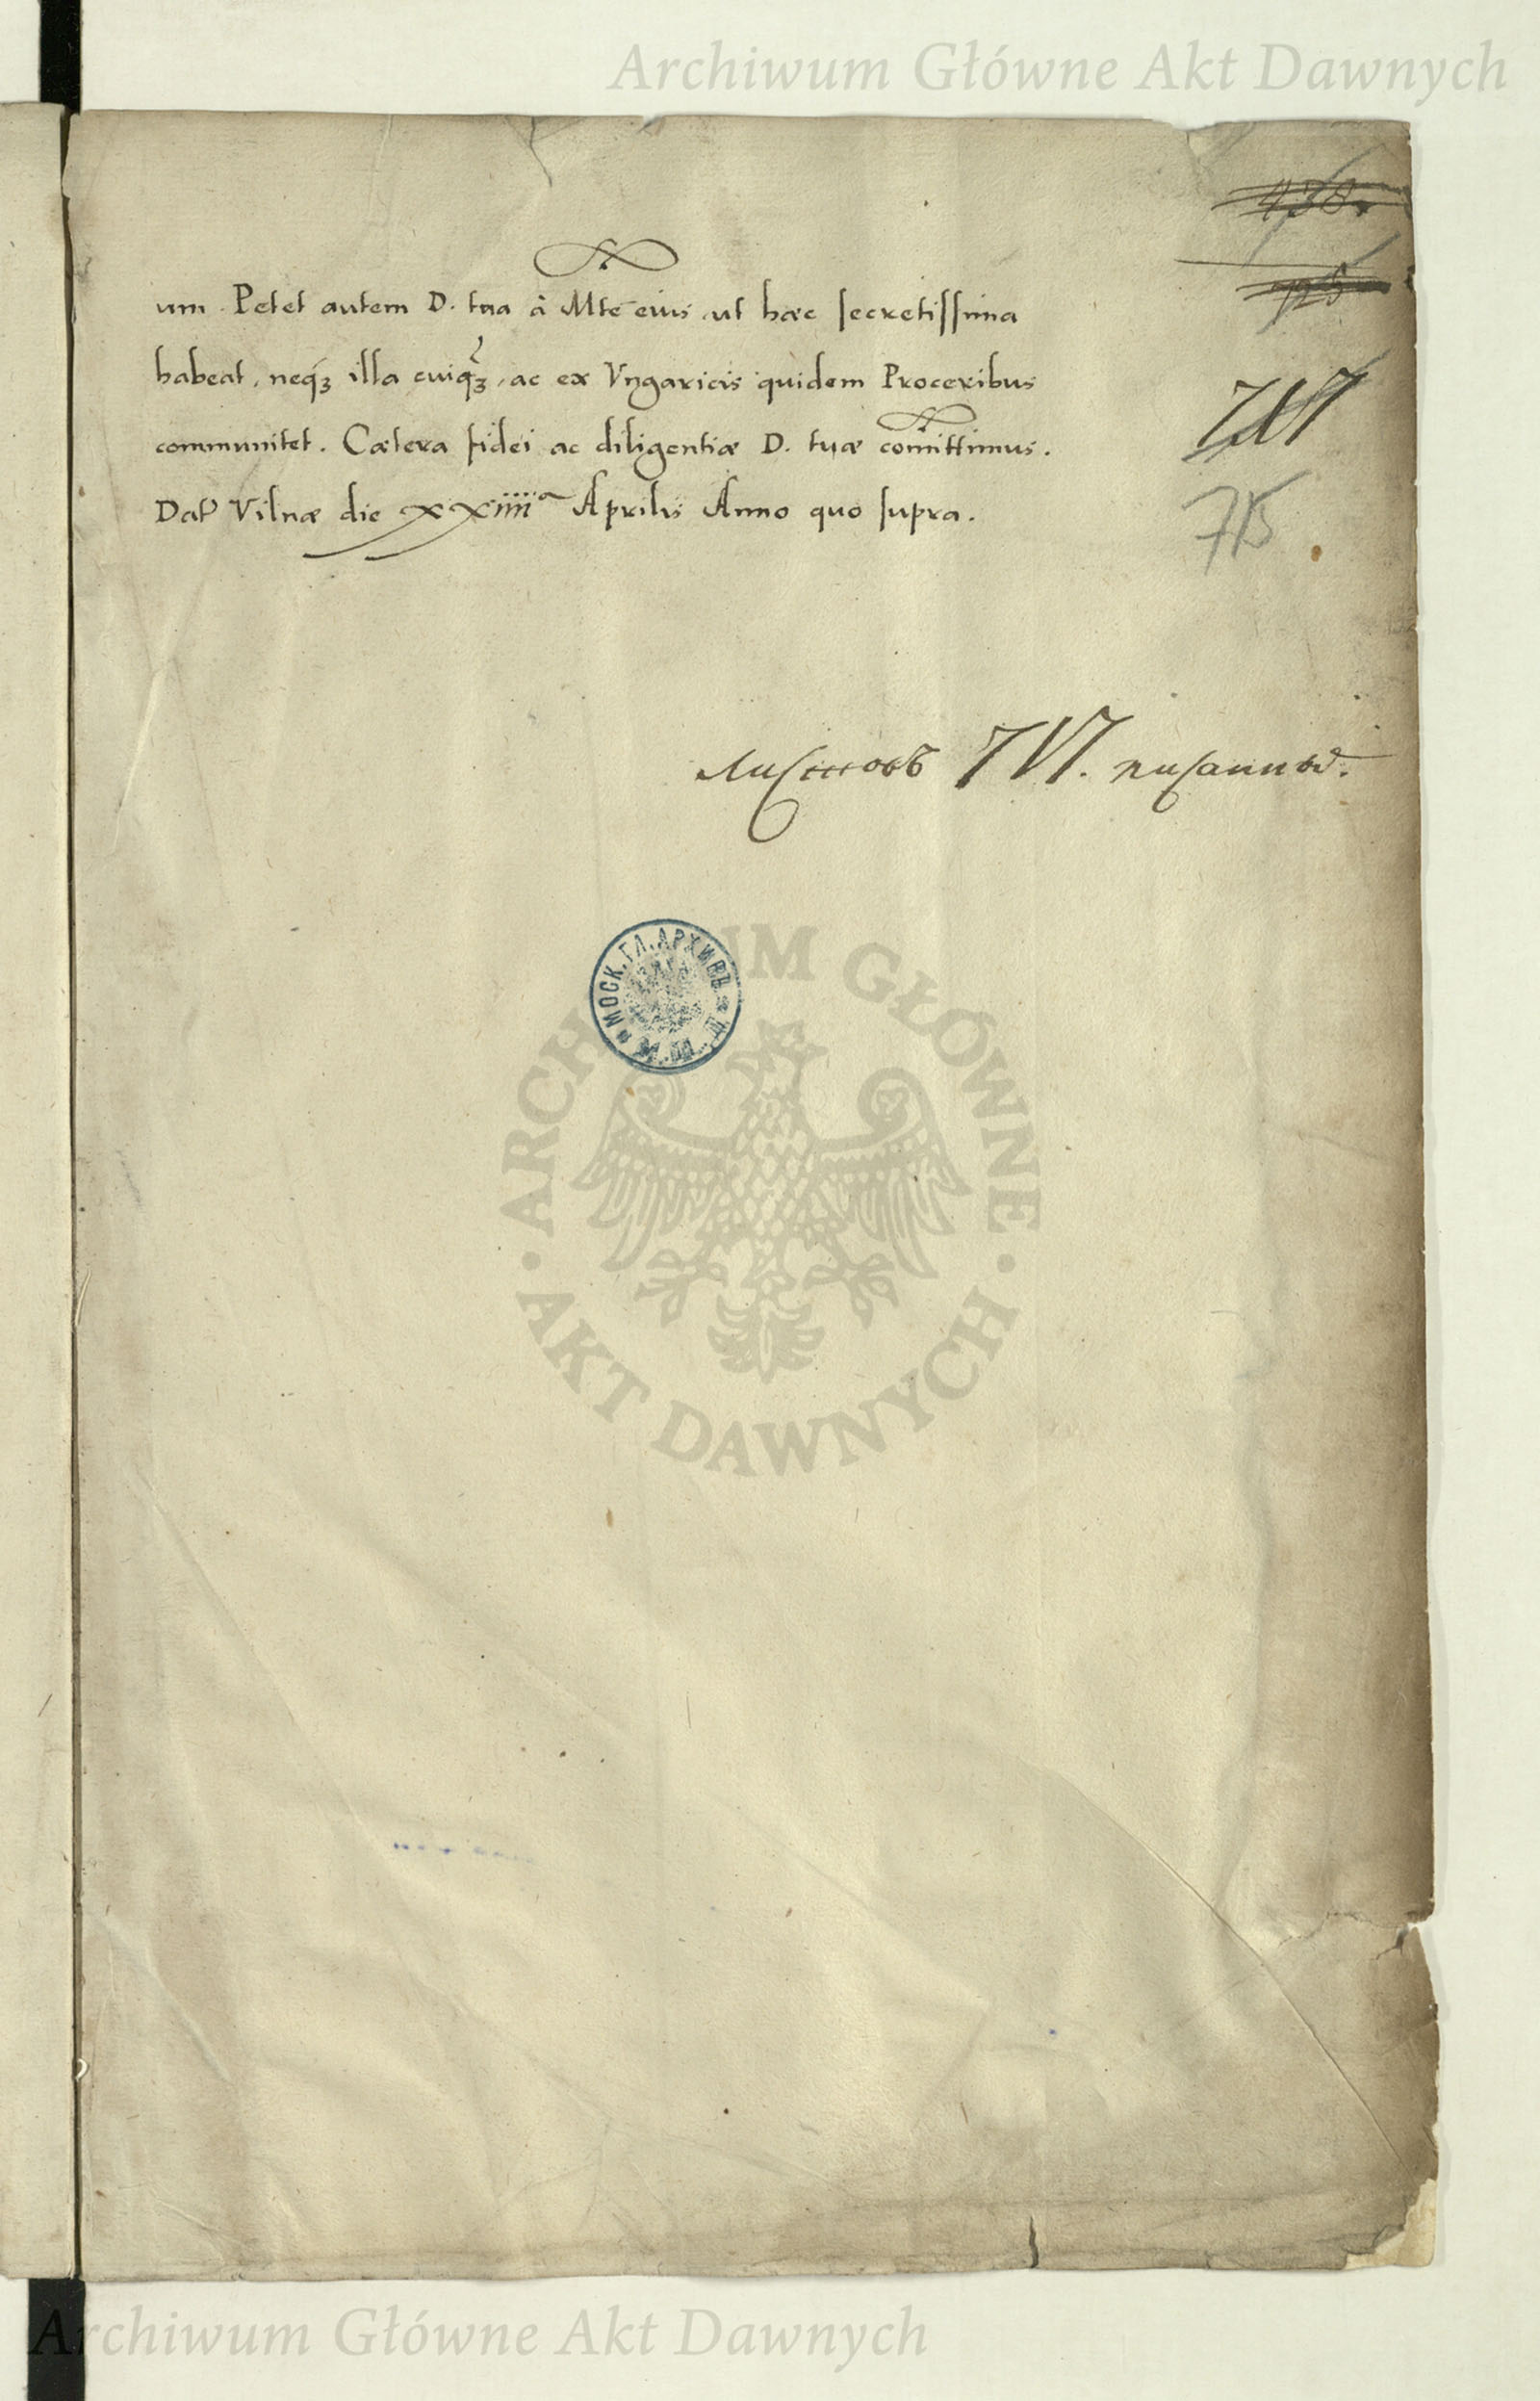 Archiwum Główne Akt Dawnych
um. Petet autem D. tua à Mte eius ut haec secretissima
habeat, neq́ꝫ illa cuiqꝫ, ac ex Vngaricis quidem Proceribus
communitet. Cætera fidei ac diligentiæ D. tuæ comittimus.
Dat Vilnæ die xxiiii a Aprilis Anno quo supra.
717
715
листовъ 717. писанныхъ.
МОСК. ГЛ. АРХИВЪ
ARCHIWUM GŁÓWNE
AKT DAWNYCH
Archiwum Główne Akt Dawnych